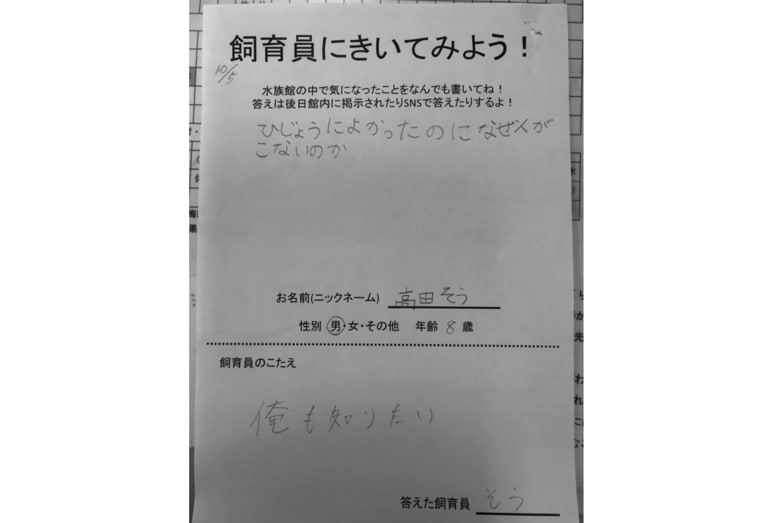 飼育員にきいてみよう!
10/5
水族館の中で気になったことをなんでも書いてね!
答えは後日館内に掲示されたりSNSで答えたりするよ!
ひじょうによかったのになぜ人が
こないのか
お名前(ニックネーム) 高田そう
性別 男・女・その他 年齢 8 歳
飼育員のこたえ
俺も知りたい
答えた飼育員 そう